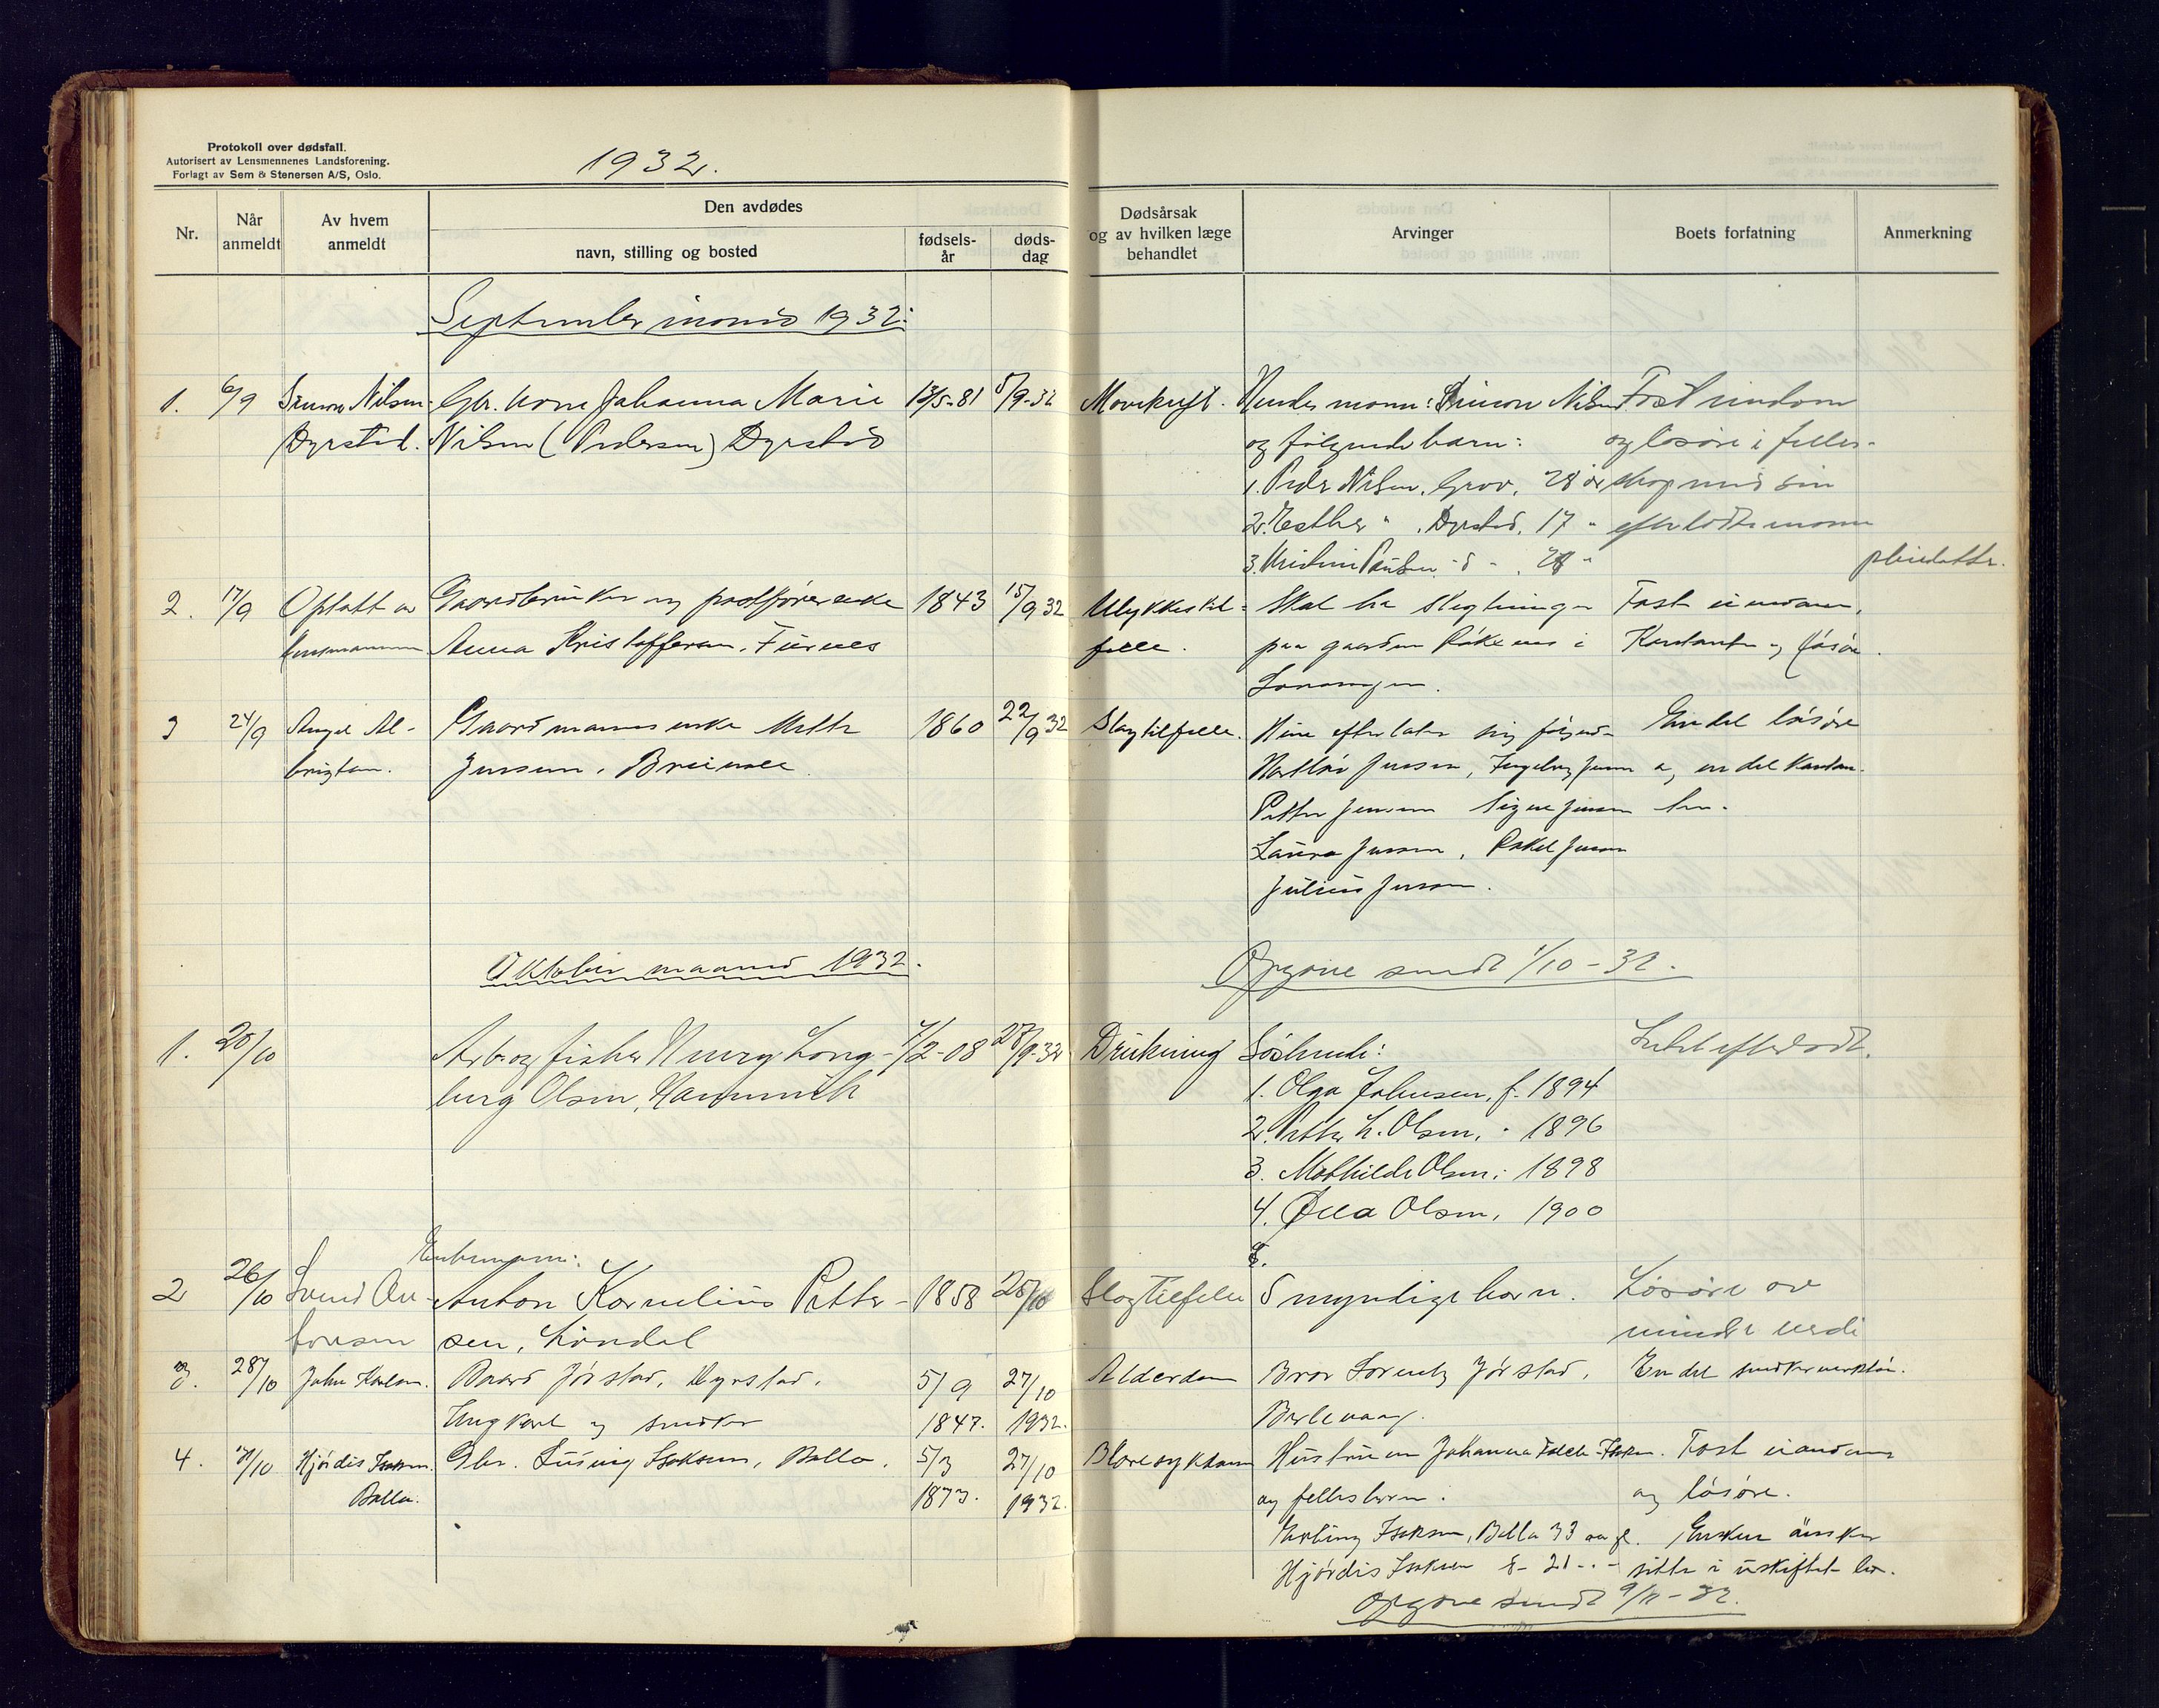 Protokoll over dødsfall.
Autorisert av Lensmennenes Landsforening.
Forlagt av Sem & Stenersen A/S, Oslo.
1932.
Nr.
Når anmeldt
Av hvem anmeldt
Den avdødes
navn, stilling og bosted
fødsels-år
døds-dag
Dødsårsak og av hvilken læge behandlet
Arvinger
Boets forfatning
Anmerkning
September måned 1932:
1. 6/9 Simon Nilsen Gbr. kone Johanna Marie 13/5-81 5/9-32 Mavekreft. Hendes mann: Simon Nilsen Fast eiendom
Dyrstad. Nilsen (Pedersen) Dyrstad og følgende barn: og løsøre i felles-
1. Peder Nilsen, Grov, 28 år skap med sin
2. Esther " , Dyrstad, 17 " efterlatte mann
3. Kristine Paulsen pleiedatter.
2. 17/9 Optatt av Gaardbruker og postførerenke 1843 15/9 32 Ulykkestil-
lensmannen Anna Kristoffersen, Furnes felle.
Skal ha slegtninger Fast eiendom,
paa gaarden Røkenes i Kontanter og løsøre.
Lavangen.
3 24/9 Angel Al- Gaardmannsenke Mette 1860 22/9 32 Slagtilfelle. Hun efterlater sig følgend- En del løsøre
brigtsen. Jensen, Breivoll Jensen, Ingeborg Jensen og en del kontan-
Petter Jensen Signe Jensen ter.
Laura Jensen, Rakel Jensen
Julius Jensen.
Oktober maaned 1932.
Opgave sendt 1/10-32.
1. 20/10 Arb. og fisker Henry Long- 7/2-08 28/9-32 Drukning Søskende: Intet efterladt.
berg Olsen, Hamnvik 1. Olga Johnsen, f. 1894
2. Petter L. Olsen, " 1896
3. Mathilde Olsen, " 1898
4. Olsen, 1900
Enkemann:
2 26/10 Svend An- Anton Kornelius Petter- 1858 25/10 Slagtilfelle 5 myndige barn. Løsøre av
tonsen sen, Løndal mindre verdi
3. 28/10 John Karlsen. Baard Jørstad, Dyrstad, 5/9 27/10 Alderdom Bror Lorentz Jørstad, En del snedkerverktøi.
Ungkarl og snedker 1847. 1932. Berlevaag.
4. 31/10 Hjørdis Isaksen Gbr. Ludvig Isaksen, Balla, 5/3 27/10 Blæresykdom Hustruen Johanna Isaksen. Fast eiendom
Balla. 1873. 1932. og fellesbarn: og løsøre.
Erling Isaksen, Balla 33 aar gl. Enken ønsker
Hjørdis Isaksen 21 sitte i uskiftet bo.
Opgave sendt 9/11-32.